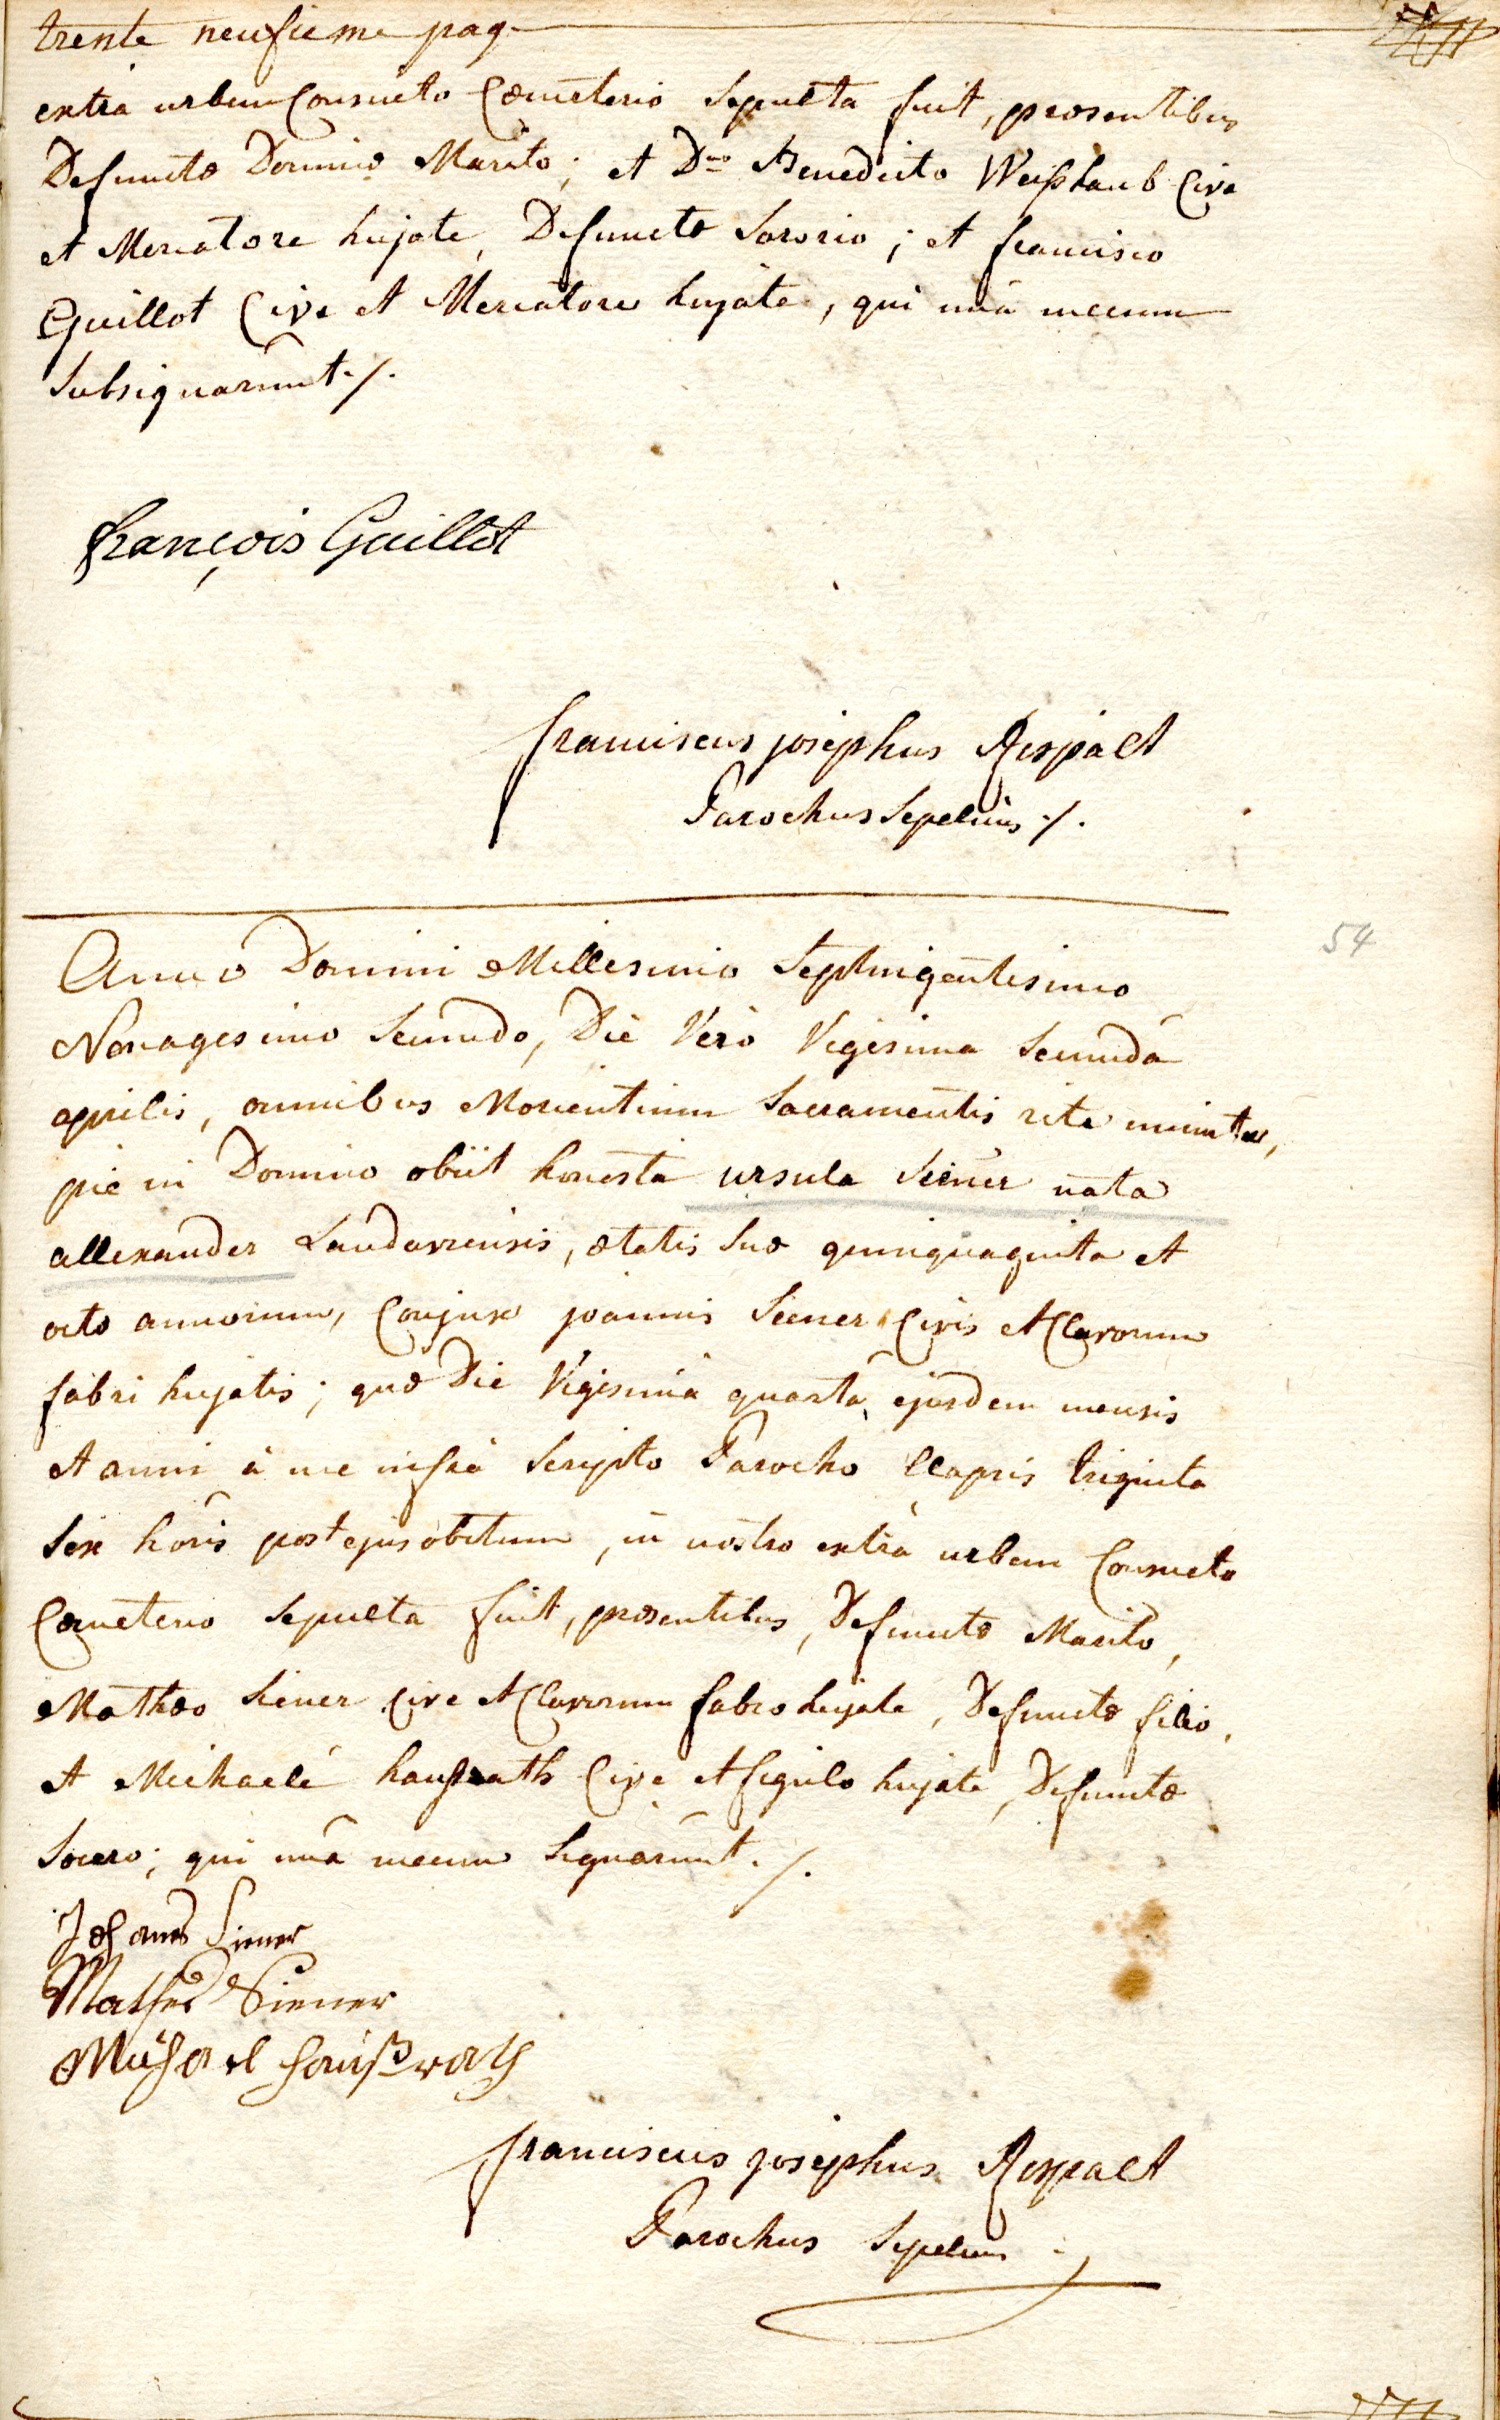 trente neufieme pag.
extra urbem Consueto Cœmeterio Sepulta fuit, præsentibus
Defunctæ Domino Marito; et Dno Benedicto Weißlaub Cive
et Mercatore hujate, Defunctæ Sororio; et francisco
Guillot Cive et Mercatore hujate, qui unà mecum
Subsignarunt./.
françois Guillot
franciscus josephus Respalt
Parochus Sepeliens ./.
54
Anno Domini Millesimo Septingentesimo
Nonagesimo Secundo, Die Verò Vigesima Secundâ
aprilis, omnibus Morientium Sacramentis rite munita,
piè in Domino obiit honesta ursula Siener nata
allexander Landaviensis, ætatis suæ quinquaginta et
octo annorum, Conjux joannis Siener Civis et Clavorum
fabri hujatis; quæ Die Vigesimâ quartâ ejusdem mensis
et anni à me infrà Scripto Parocho Elapsis triginta
Sex horis post ejus obitum, in nostro extrà urbem Consueto
Cœmeterio Sepulta fuit, præsentibus, Defunctæ Marito,
Mathæo Siener Cive et Clavorum fabro hujate, Defunctæ filio,
et Michaele haußrath Cive et figulo hujate, Defunctæ
Socero; qui unâ mecum Signarunt ./.
Johanes Siener
Mathes Siener
Michael Haußrath
franciscus josephus Respalt
Parochus Sepeliens